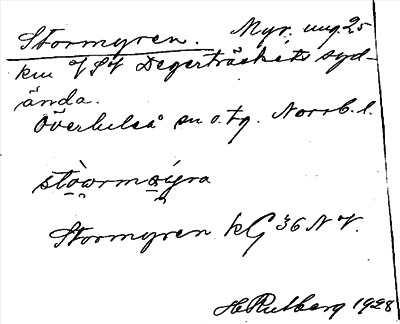 Stormyren. Myr. ung. 25
km VSV Degerträskets syd-
ända.
Överluleå sn o. tg. Norrb. l.
Stormyren kG 36 NV.
H Rutberg 1928